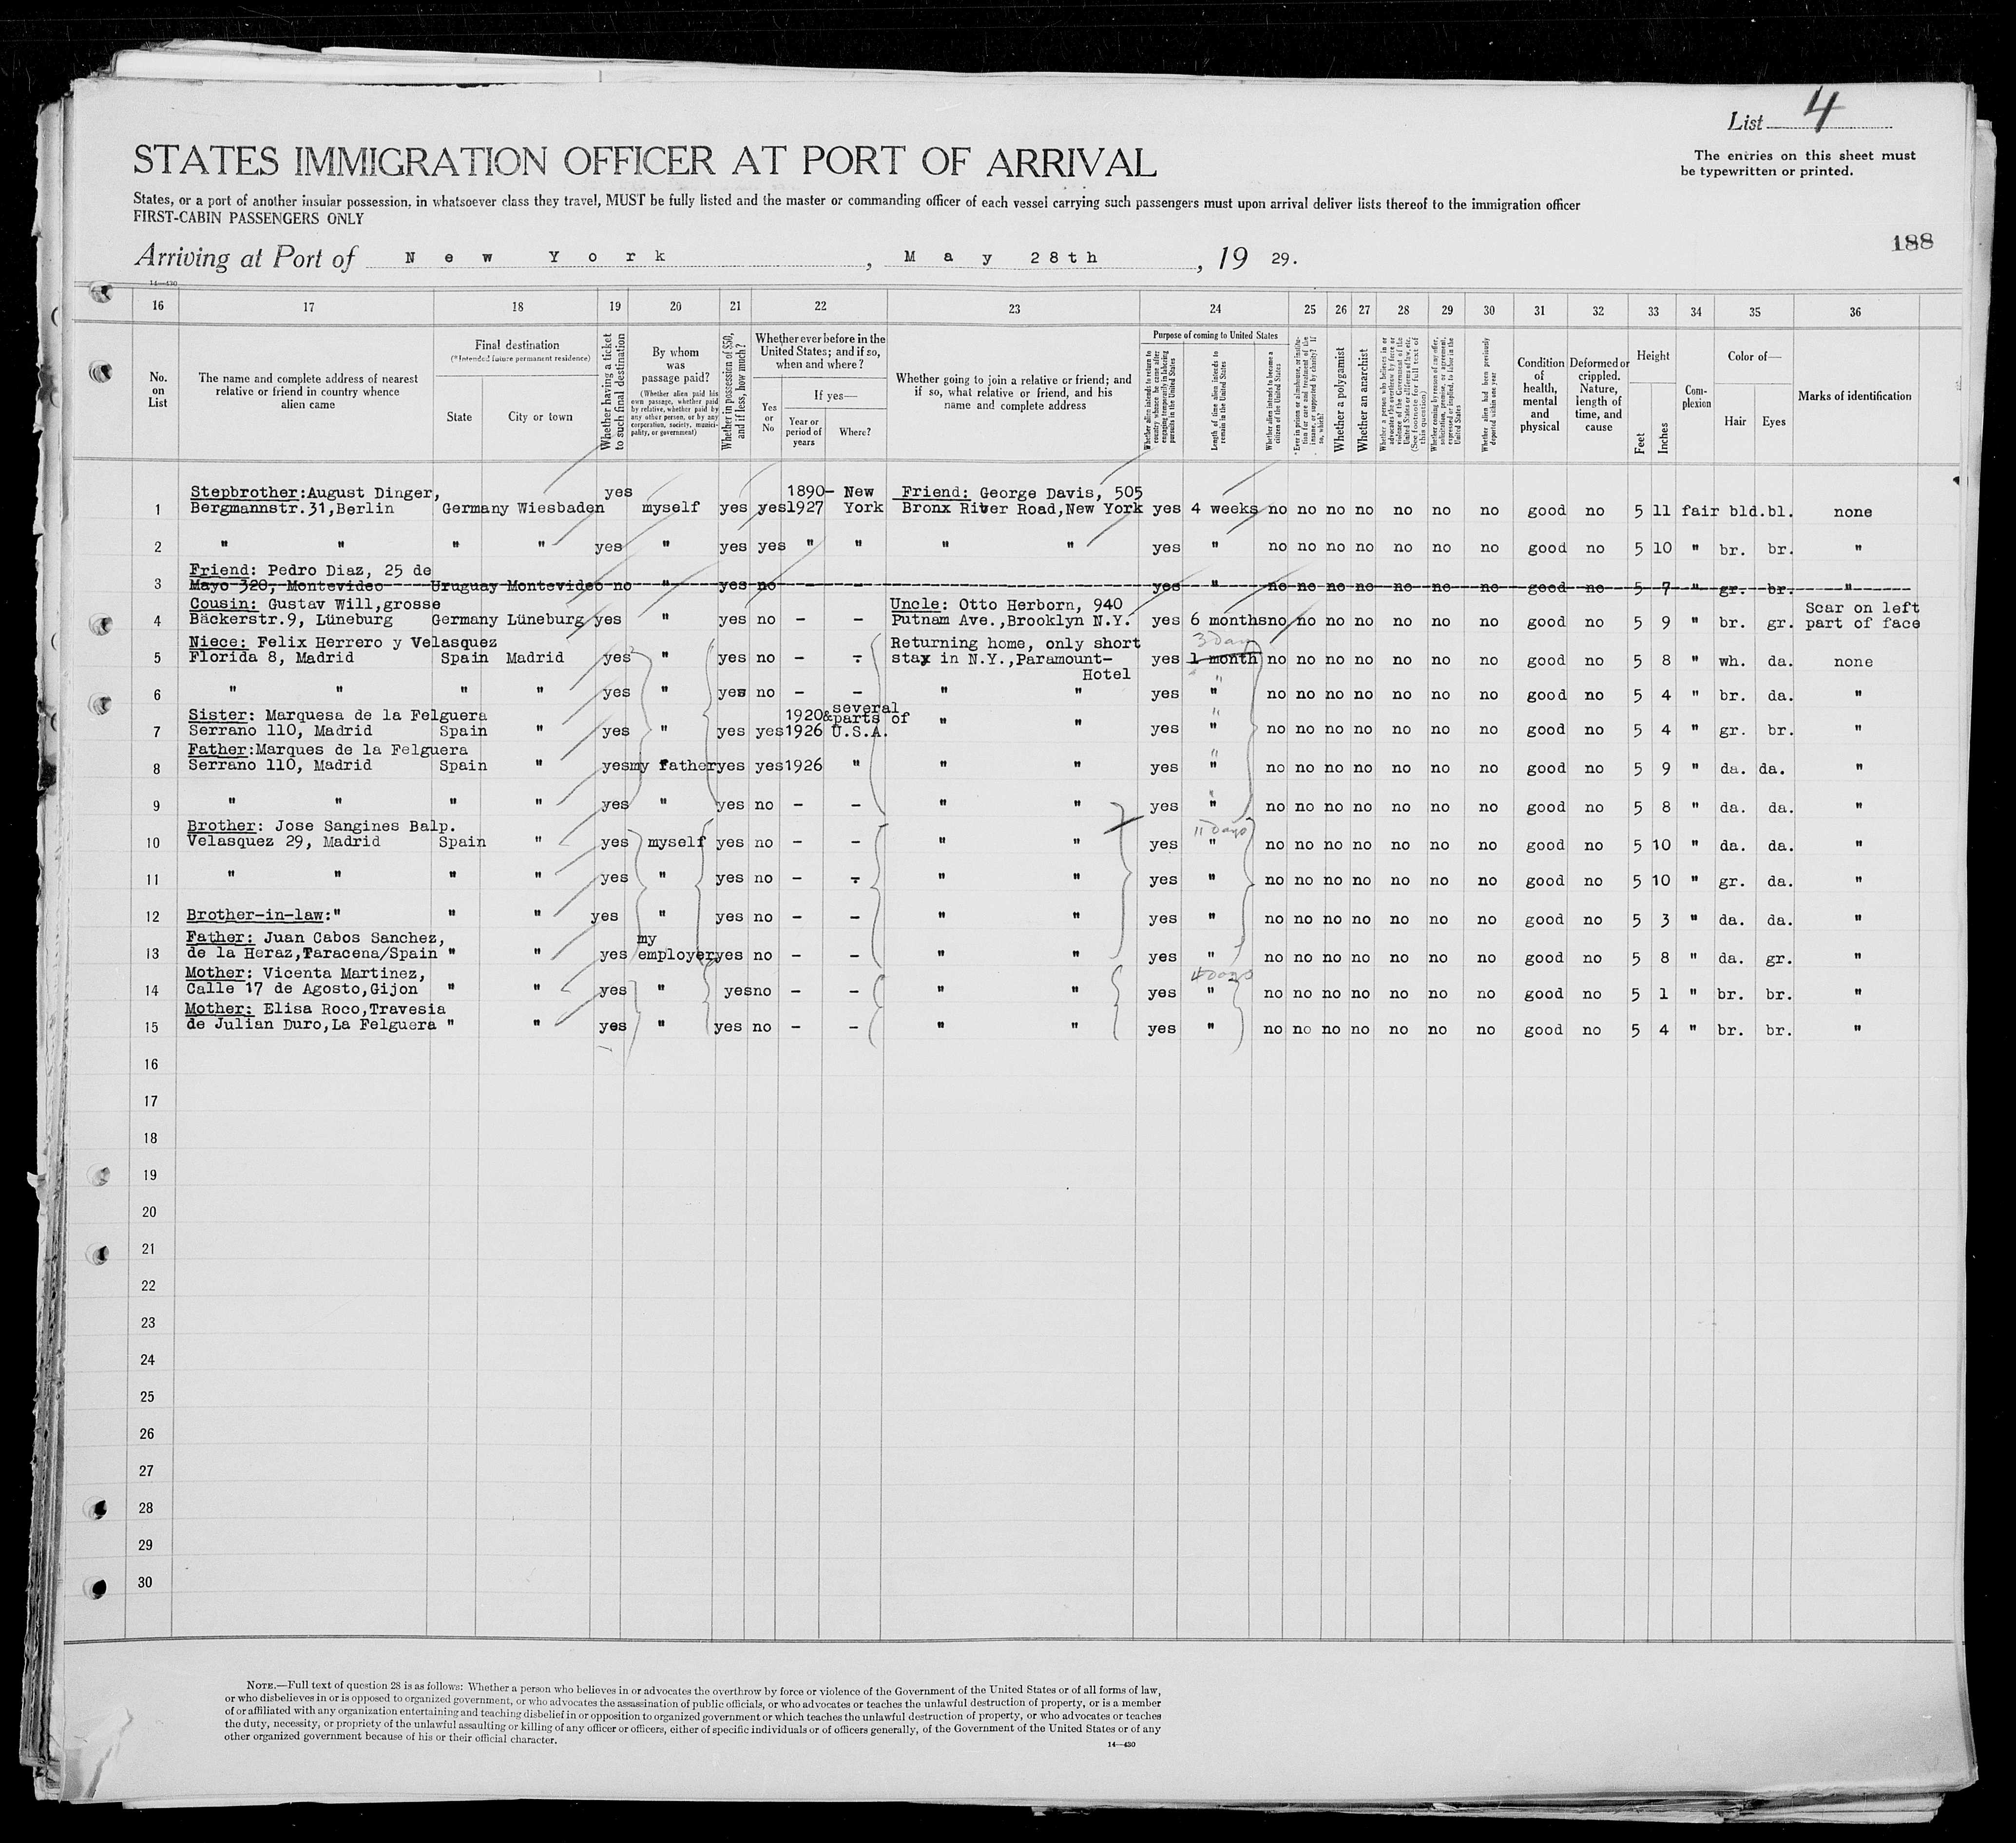 List 4
STATES IMMIGRATION OFFICER AT PORT OF ARRIVAL
The entries on this sheet must
be typewritten or printed.
States, or a port of another insular possession, in whatsoever class they travel, MUST be fully listed and the master or commanding officer of each vessel carrying such passengers must upon arrival deliver lists thereof to the immigration officer
FIRST-CABIN PASSENGERS ONLY
188
Arriving at Port of New York, May 28th, 19 29.
14—430
16 17 18 19 20 21 22 23 24 25 26 27 28 29 30 31 32 33 34 35 36
No. on List
The name and complete address of nearest relative or friend in country whence alien came
Final destination
(*Intended future permanent residence)
State
City or town
Whether having a ticket to such final destination
By whom was passage paid?
(Whether alien paid his own passage, whether paid by relative, whether paid by any other person, or by any corporation, society, municipality, or government)
Whether in possession of $50, and if less, how much?
Whether ever before in the United States; and if so, when and where?
Yes or No
If yes—
Year or period of years
Where?
Whether going to join a relative or friend; and if so, what relative or friend, and his name and complete address
Purpose of coming to United States
Whether alien intends to return to country whence he came after engaging temporarily in laboring pursuits in the United States
Length of time alien intends to remain in the United States
Whether alien intends to become a citizen of the United States
Ever in prison or almshouse, or institution for care and treatment of the insane, or supported by charity? If so, which?
Whether a polygamist
Whether an anarchist
Whether a person who believes in or advocates the overthrow by force or violence of the Government of the United States or all forms of law, etc. (See footnote for full text of this question)
Whether coming by reason of any offer, solicitation, promise, or agreement, expressed or implied, to labor in the United States
Whether alien had been previously deported within one year
Condition of health, mental and physical
Deformed or crippled. Nature, length of time, and cause
Height
Feet
Inches
Complexion
Color of—
Hair
Eyes
Marks of identification
1 Stepbrother:August Dinger, Bergmannstr.31,Berlin Germany Wiesbaden yes myself yes yes 1890-1927 New York Friend: George Davis, 505 Bronx River Road,New York yes 4 weeks no no no no no no no good no 5 11 fair bld. bl. none
2 " " " " yes " yes yes " " " " yes " no no no no no no no good no 5 10 " br. br. "
3 Friend: Pedro Diaz, 25 de Mayo 320, Montevideo Uruguay Montevideo no " yes no - - yes " no no no no no no no good no 5 7 " gr. br. "
4 Cousin: Gustav Will,grosse Bäckerstr.9, Lüneburg Germany Lüneburg yes " yes no - - Uncle: Otto Herborn, 940 Putnam Ave.,Brooklyn N.Y. yes 6 months no no no no no no no good no 5 9 " br. gr. Scar on left part of face
5 Niece: Felix Herrero y Velasquez Florida 8, Madrid Spain Madrid yes " yes no - - Returning home, only short stay in N.Y.,Paramount-Hotel yes 3 Day 1 month no no no no no no no good no 5 8 " wh. da. none
6 " " " " yes " yes no - - " " yes " no no no no no no no good no 5 4 " br. da. "
7 Sister: Marquesa de la Felguera Serrano 110, Madrid Spain " yes " yes yes 1920& 1926 several parts of U.S.A. " " yes " no no no no no no no good no 5 4 " gr. br. "
8 Father:Marques de la Felguera Serrano 110, Madrid Spain " yes my father yes yes 1926 " " " yes " no no no no no no no good no 5 9 " da. da. "
9 " " " " yes " yes no - - " " yes " no no no no no no no good no 5 8 " da. da. "
10 Brother: Jose Sangines Balp. Velasquez 29, Madrid Spain " yes myself yes no - - " " yes 11 Days " no no no no no no no good no 5 10 " da. da. "
11 " " " " yes " yes no - - " " yes " no no no no no no no good no 5 10 " gr. da. "
12 Brother-in-law:" " " yes " yes no - - " " yes " no no no no no no no good no 5 3 " da. da. "
13 Father: Juan Cabos Sanchez, de la Heraz,Taracena/Spain " " yes my employer yes no - - " " yes " no no no no no no no good no 5 8 " da. gr. "
14 Mother: Vicenta Martinez, Calle 17 de Agosto,Gijon " " yes " yes no - - " " yes 4 Days " no no no no no no no good no 5 1 " br. br. "
15 Mother: Elisa Roco,Travesia de Julian Duro,La Felguera " " yes " yes no - - " " yes " no no no no no no no good no 5 4 " br. br. "
16
17
18
19
20
21
22
23
24
25
26
27
28
29
30
NOTE.—Full text of question 28 is as follows: Whether a person who believes in or advocates the overthrow by force or violence of the Government of the United States or of all forms of law,
or who disbelieves in or is opposed to organized government, or who advocates the assassination of public officials, or who advocates or teaches the unlawful destruction of property, or is a member
of or affiliated with any organization entertaining and teaching disbelief in or opposition to organized government or which teaches the unlawful destruction of property, or who advocates or teaches
the duty, necessity, or propriety of the unlawful assaulting or killing of any officer or officers, either of specific individuals or of officers generally, of the Government of the United States or of any
other organized government because of his or their official character.
14—430